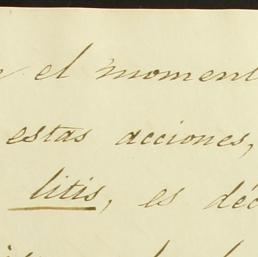 el moment
estas acciones,
litis, es déc